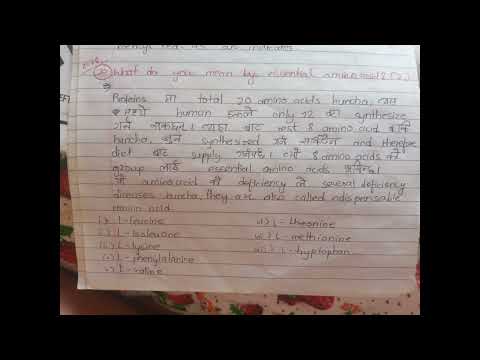 What do you mean by essential amino acid? (2)
Proteins मा total 20 amino acids huncha, त्यस
human हरूले only 12 वटा synthesize
गर्न सक्छन्। त्यहा बाट rest 8 amino acid बाँकि
huncha, जुन synthesized गर्न सकिदैन and therefore
diet बाट supply गरिन्छ। त्यो 8 amino acids को
group लाई essential amino acids भनिन्छ।
यी amino acid को deficiency ले several deficiency
diseases huncha, they are also called indispensable
amino acid.
i) L-leucine
ii) L-isoleucine
iii) L-lysine
iv) L-phenylalanine
v) L-valine
vi) L-threonine
vii) L-methionine
viii) L-tryptophan